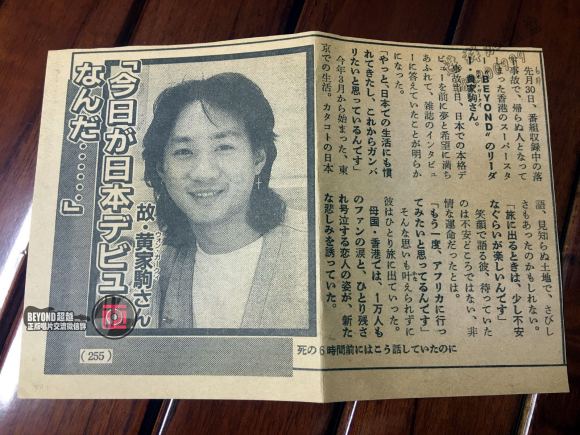 「今日が日本デビュー
なんだ……」
故・黄家駒さん
ウォン・ガークイ
先月30日、番組収録中の落
下事故で、帰らぬ人となって
しまった香港のスーパースタ
ー“BEYOND”のリーダ
ー・黄家駒さん。
事故当日、日本での本格デ
ビューを前に夢と希望に満ち
あふれて、雑誌のインタビュ
ーに答えていたことが明らか
になった。
「やっと、日本での生活にも慣
れてきたし、これからガンバ
リたいと思っているんです」
今年3月から始まった、東
京での生活。カタコトの日本
語、見知らぬ土地で、さびし
さもあったのかもしれない。
「旅に出るときは、少し不安
なぐらいが楽しいんです」
笑顔で語る彼、待っていた
のは不安どころではない、非
情な運命だったとは。
「もう一度、アフリカに行っ
てみたいと思ってるんです」
そんな思いも叶えられずに
彼はひとり旅に出ていった。
母国・香港では、1万人も
のファンの涙と、ひとり残さ
れ号泣する恋人の姿が、新た
な悲しみを誘っていた。
死の6時間前にはこう話していたのに
(255)
BEYOND超越
正版唱片交流微信群